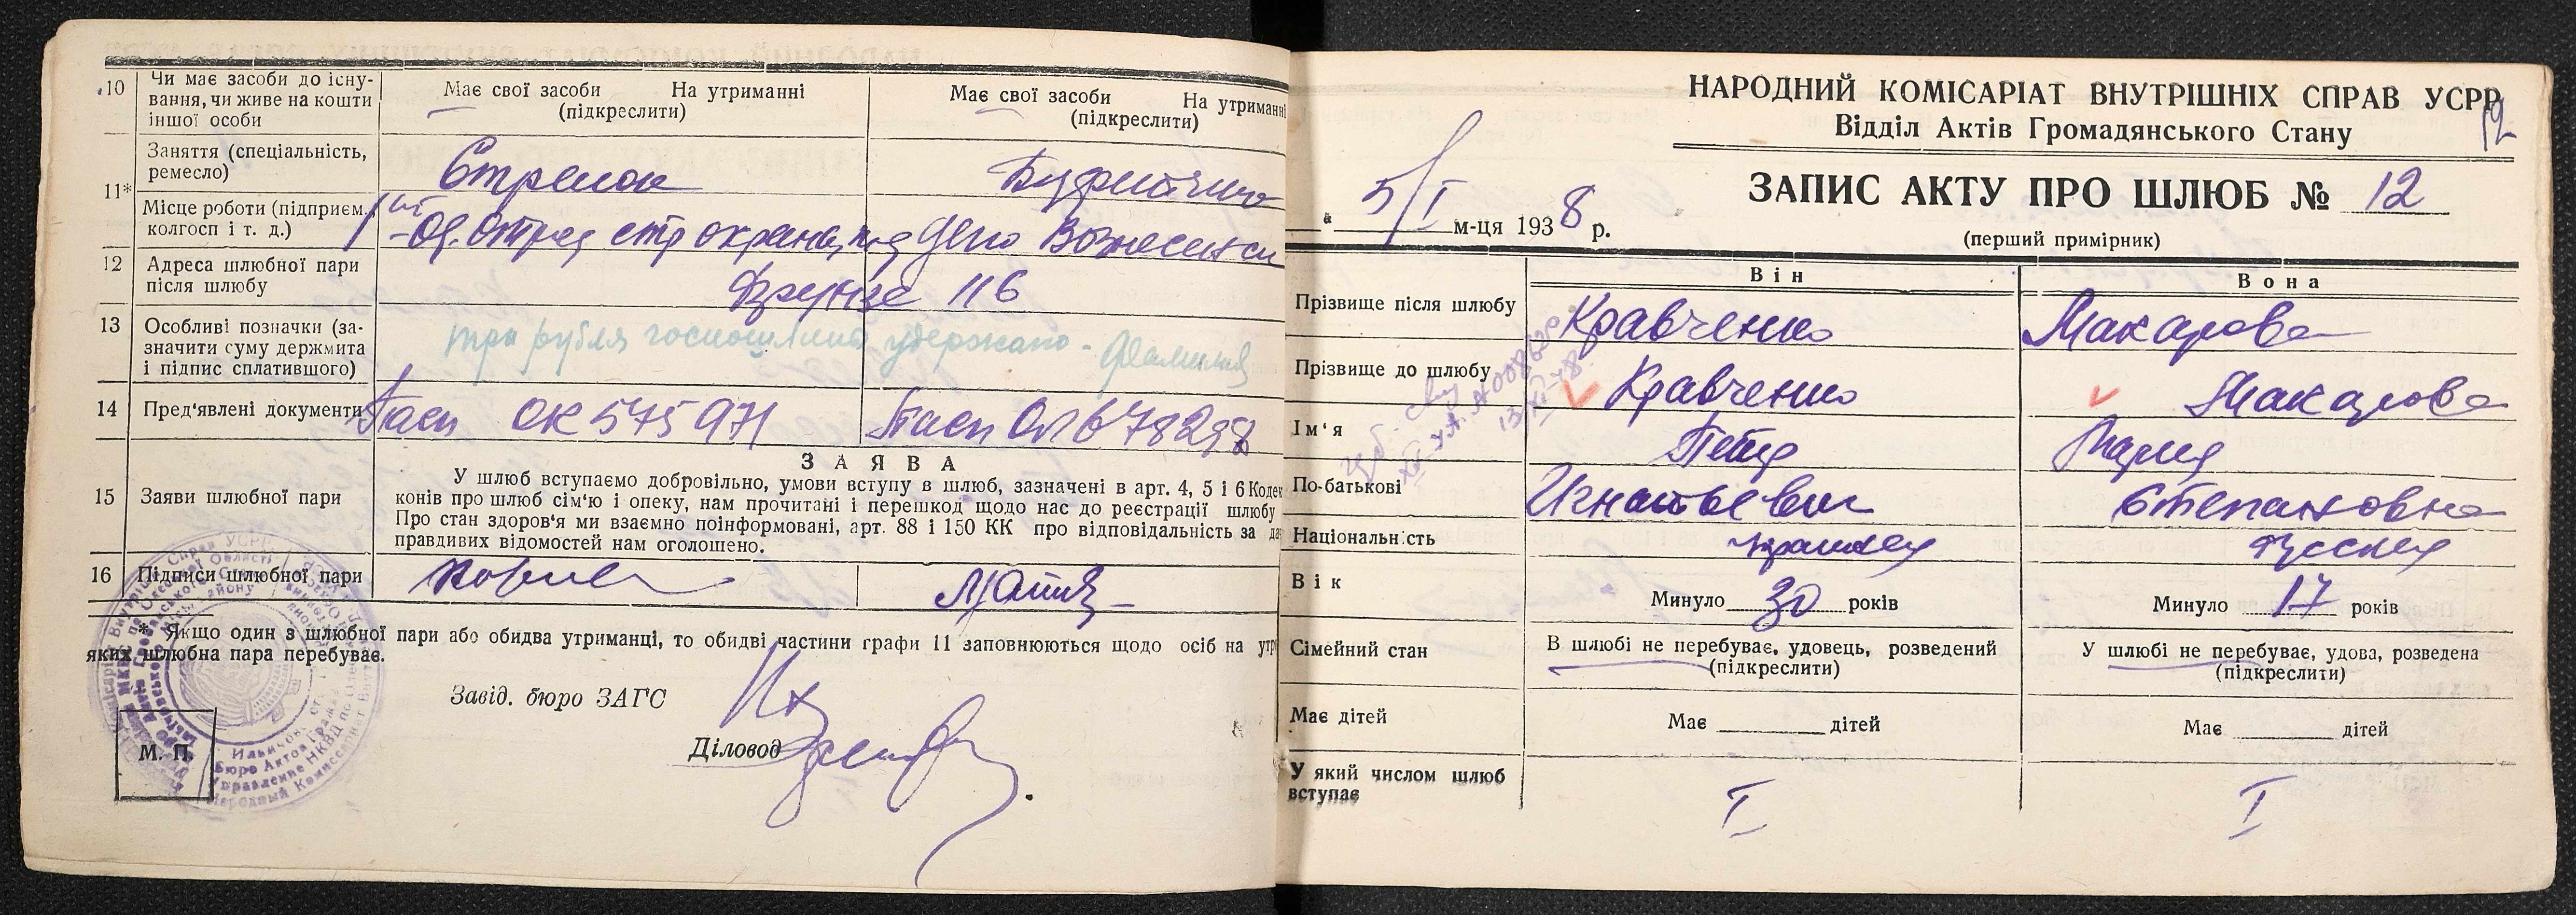 10 Чи має засоби до існування, чи живе на кошти іншої особи
Має свої засоби На утриманні (підкреслити)
Має свої засоби На утриманні (підкреслити)
11* Заняття (спеціальність, ремесло)
Стрелок
Буфетчица
Місце роботи (підприєм. колгосп і т. д.)
Отряд стр охраны
Депо Вознесенск
12 Адреса шлюбної пари після шлюбу
Фрунзе 116
13 Особливі позначки (зазначити суму держмита і підпис сплатившого)
три рубля госпошлина удержано -
14 Пред'явлені документи
Пасп ОК 575971
Пасп ОЛ 678298
15 Заяви шлюбної пари
ЗАЯВА
У шлюб вступаємо добровільно, умови вступу в шлюб, зазначені в арт. 4, 5 і 6 Кодек
конів про шлюб сім'ю і опеку, нам прочитані і перешкод щодо нас до реєстрації шлюбу
Про стан здоров'я ми взаємно поінформовані, арт. 88 і 150 КК про відповідальність за
правдивих відомостей нам оголошено.
16 Підписи шлюбної пари
* Якщо один з шлюбної пари або обидва утриманці, то обидві частини графи 11 заповнюються щодо осіб на утр
яких шлюбна пара перебуває.
Завід. бюро ЗАГС
Діловод
М. П.
НАРОДНИЙ КОМІСАРІАТ ВНУТРІШНІХ СПРАВ УСРР
Відділ Актів Громадянського Стану
12
ЗАПИС АКТУ ПРО ШЛЮБ № 12
5/I м-ця 1938 р.
(перший примірник)
Він
Вона
Прізвище після шлюбу
Кравченко
Макарова
Прізвище до шлюбу
Кравченко
Макарова
Ім'я
Петр
Мария
По-батькові
Игнатьевич
Степановна
Національність
украинец
русская
Вік
Минуло 30 років
Минуло 17 років
Сімейний стан
В шлюбі не перебуває, удовець, розведений (підкреслити)
У шлюбі не перебуває, удова, розведена (підкреслити)
Має дітей
Має дітей
Має дітей
У який числом шлюб вступає
I
I